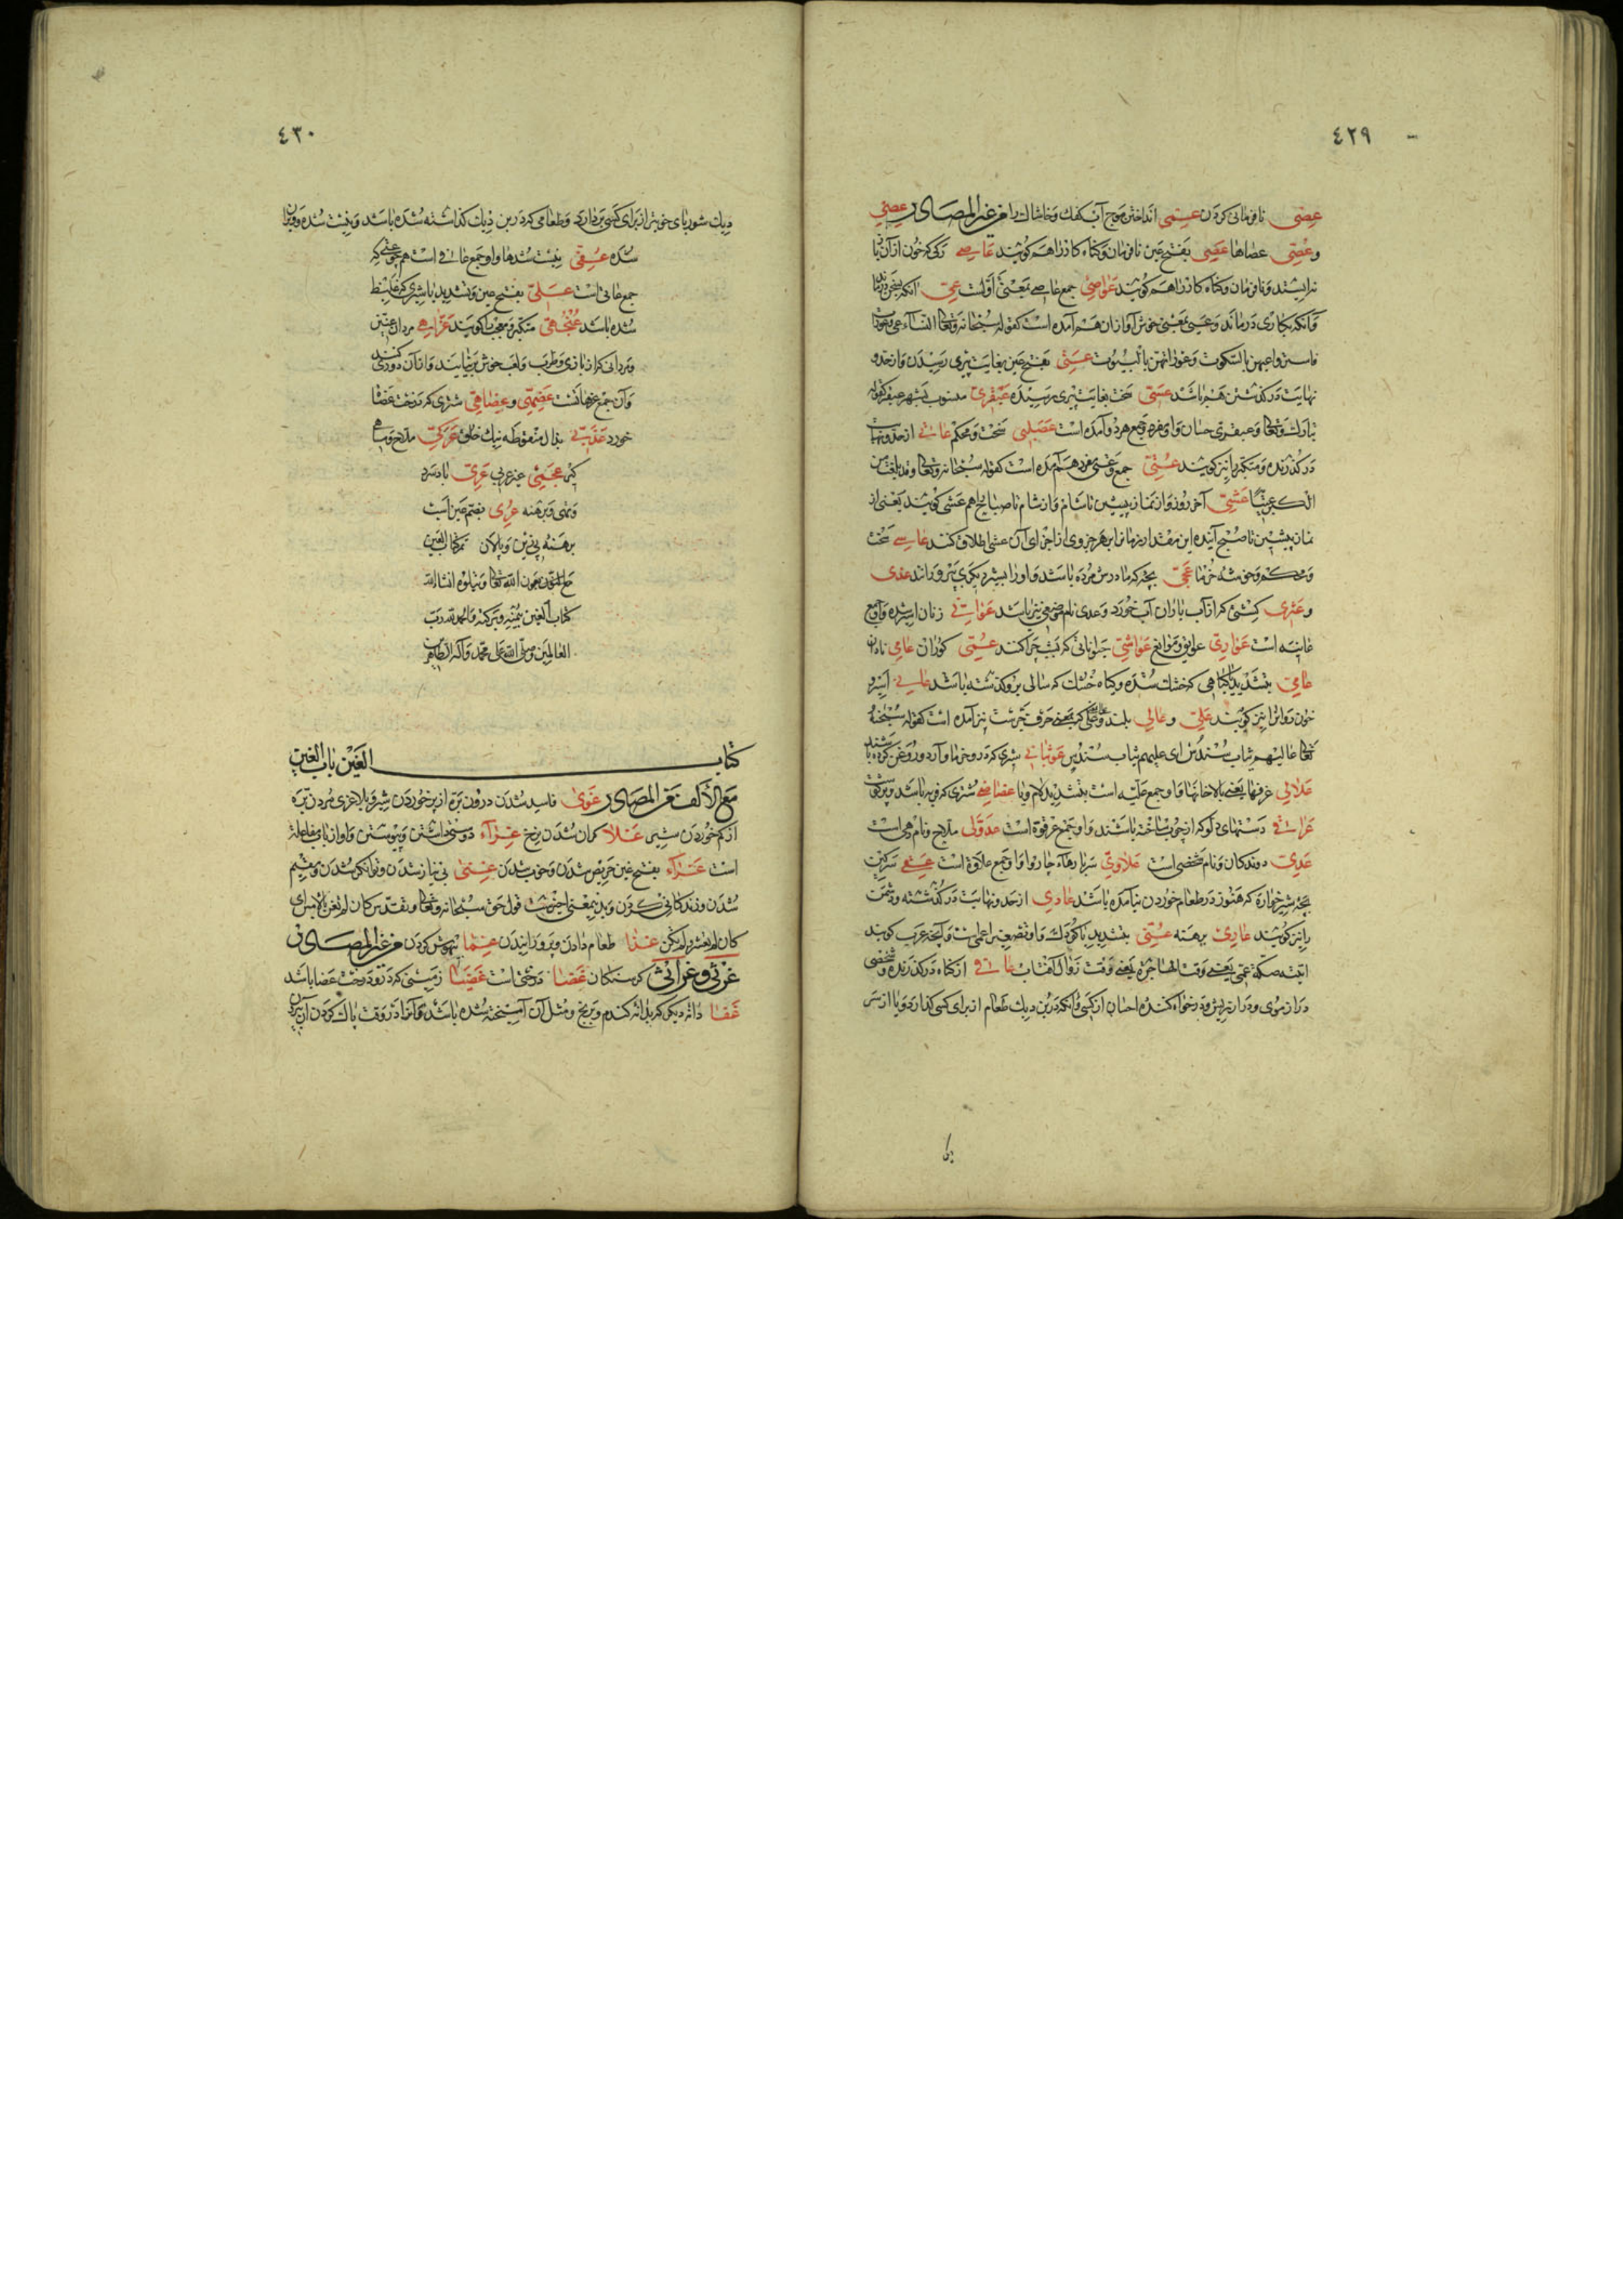 ٤٢٩
عصی نافرمانی کردن عسمی انداختن موج آب کفک و خاشاک را من غیر المصادر عصی
و عصی عصاها عصی بفتح عین نافرمان و گناه کار را هم گویند عاصی رگی که خون از آن باز
نه ایستد و نافرمان و گناه کار را هم گویند عواصی جمع عاصی بمعنی اولست عی آنکه
و آنکه بکاری درماند و عیی بمعنی هم آمده است کقوله سبحانه و تعالی النساء عی و عورات
فاستروا عیهن بالسکوت و عوراتهن بالبیوت عتی بفتح عین بغایت پیری رسیدن و از حد و
نهایت در گذشتن هم باشد عتی سخت بغایت پیری رسیده عبقری منسوب بشهر عبقر کقوله
تبارک و تعالی و عبقری حسان و او مفرد و جمع هر دو آمده است عصلبی سخت و محکم عاتی از حد و نهایت
در گذرنده و متکبر را نیز گویند عتی جمع و عتی مفرد هم آمده است کقوله سبحانه و تعالی و قد بلغت من
الکبر عتیا عشی آخر روز و از نماز پیشین تا شام و از شام تا صباح هم عشی گویند یعنی از
نماز پیشین تا صبح آینده این مقدار زمان را بهر جزوی از اجزای آن عشی اطلاق کنند عاسی سخت
و محکم و خوشه خرما عجی بچه که مادرش مرده باشد و او را بشیر دیگری پرورانند عذی
و عثری کشتی که از آب باران آب خورد و عدی نام موضعی نیز باشد عواتی زنان اسیره و آن جمع
عانیه است عوادی عوایق و موانع عواشی جانورانی که بشب چرا کنند عمی کوران عامی نادان
عامی بتشدید یا گیاهی که خشک شده و گیاه خشک که سالی بر و گذشته باشد عانی اسیر و
خون روان را نیز گویند علی و عالی بلند و علی که بمعنی حرف جرست نیز آمده است کقوله سبحانه
تعالی عالیهم ثیاب سندس ای علیهم ثیاب سندس عوثبانی شیری که در و خرما و آرد و روغن کرده باشند
علالی غرفها یعنی بالاخانها و او جمع علیه است بتشدید لام و یا عضاضی شتری که فربه باشد و پر گوشت
عراقی دستهای دلو که از چوب ساخته باشند و او جمع عرقوة است عدولی ملاح و نام دهی است
عدی دوندگان و نام شخصی است علاوی سربارها چاروا و او جمع علاوة است عقی سرگین
بچه شیرخواره که هنوز در طعام خوردن نیامده باشد عادی از حد و نهایت در گذشته و دشمن
را نیز گویند عاری برهنه عمی بتشدید یا کودک و او تصغیر اعمی است و آنچه عرب گویند
اتیته صکة عمی یعنی وقت الهاجرة یعنی وقت زوال آفتاب عافی از گناه در گذرنده و شخصی
دراز موی و دراز ریش و درخواه کننده احسان از کسی و آنکه در بن دیک طعام از برای کسی گذارد و یا از سر
٤٣٠
دیک شوربای خویش از برای کسی بردارد و طعامی که در بن دیک گذاشته شده باشد و نیست شده و ویران
شده عفی نیست شدها و او جمع عافی است هم چو عتی که
جمع عاتی است عسلی بفتح عین و تشدید یا شیری که غلیظ
شده باشد عنجهی متکبر و معجب را گویند عزاهی مردان عنین
و مردانی که از بازی و طرب و لعب خوش بر نیایند و از آن دوری کنند
و آن جمع عزهاتست عضهی و عضاهی شتری که درخت عضاه
خورد عذبی بذال منقوطه نیک خلق عرکی ملاح و ماهی
گیر عجمی غیر عربی عری باد سرد
و تهی و برهنه عری بضم عین اسب
برهنه بی زین و پالان تم کتاب العین
بعون الله تعالی و یتلوه انشاء الله
کتاب الغین بیمنه و برکته و الحمد لله رب
العالمین و صلی الله علی محمد و آله الطاهرین
کتاب العَین باب الغین
مع الألف من المصادر غوی فاسد شدن درون بره از پر خوردن شیر و بلاغری مردن بره
از کم خوردن شیر غلاء گران شدن نرخ غراء دوستی داشتن و پیوستن و او از باب مفاعله
است غراء بفتح غین حریص شدن و خوب شدن غنی بی نیاز شدن و توانگر شدن و مقیم
شدن و زندگانی کردن و بدین معنی اخیرست قول حق سبحانه و تعالی و تقدس کان لم تغن بالامس ای
کان لم تکن غذا طعام دادن و پرورانیدن غما بیهوش کردن من غیر المصادر
غرثی و غراثی گرسنگان غضا درختی است غضیا زمینی که در و درخت غضا باشد
غفا دانه دیگر که بدانه گندم و برنج و مثل آن آمیخته شده باشد و آنرا در وقت پاک کردن آن بیرون